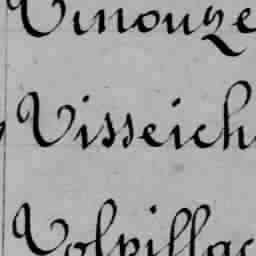 Vinouze
Visseich
Volpillac